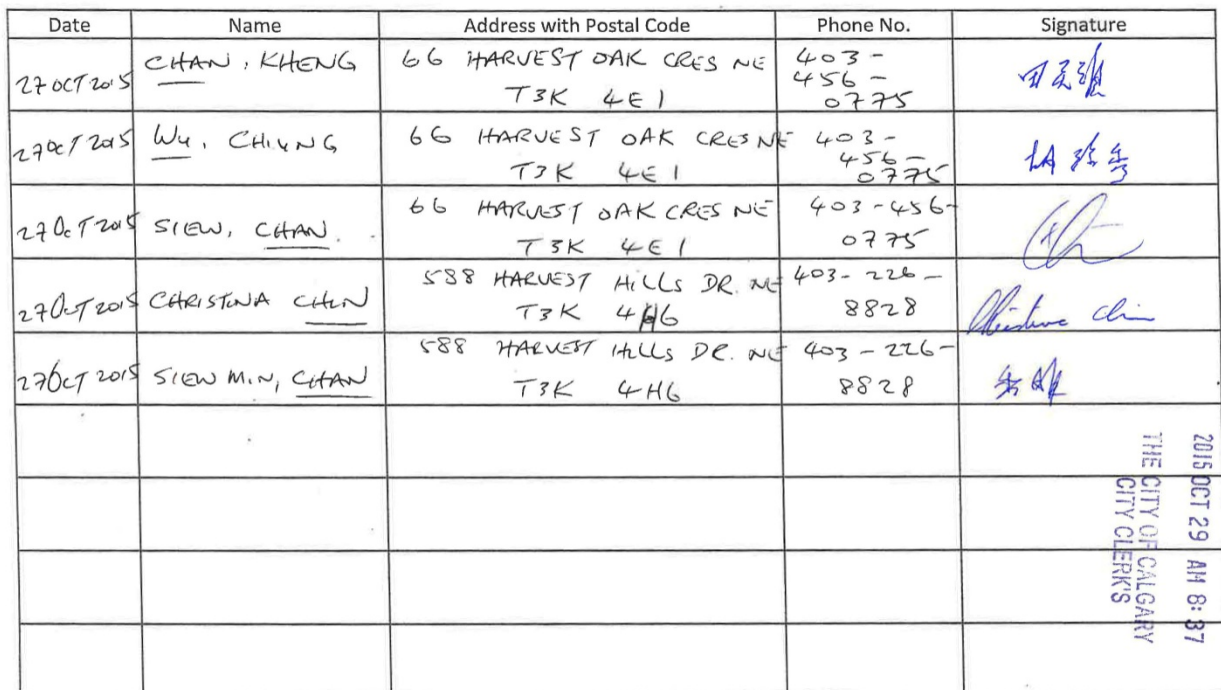 Date Name Address with Postal Code Phone No. Signature
27 OCT 2015 CHAN, KHENG 66 HARVEST OAK CRES NE 403-
T3K 4E1 456-
0775
27 OCT 2015 WU, CHIUNG 66 HARVEST OAK CRES NE 403-
T3K 4E1 456-
0775
27 OCT 2015 SIEW, CHAN. 66 HARVEST OAK CRES NE 403-456-
T3K 4E1 0775
27 OCT 2015 CHRISTINA CHIN 588 HARVEST HILLS DR. NE 403-226-
T3K 4H6 8828 Christina Chin
27 OCT 2015 SIEW MIN, CHAN 588 HARVEST HILLS DR. NE 403-226-
T3K 4H6 8828
2015 OCT 29 AM 8:37
THE CITY OF CALGARY
CITY CLERK'S